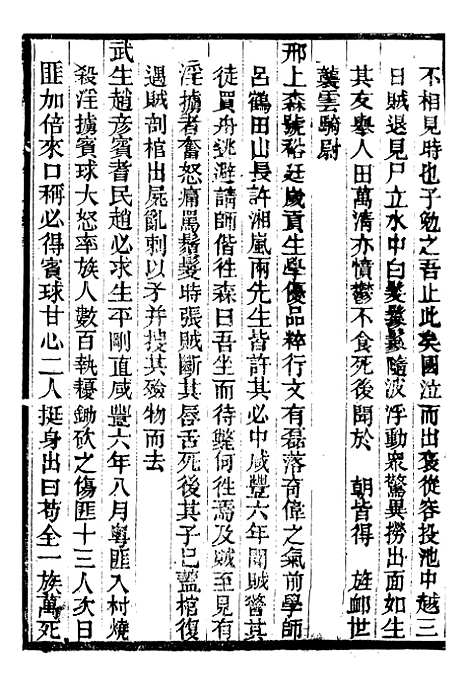 不相見時也子勉之吾止此矣國泣而出裒從容投池中越三
日賊退見尸立水中白髮鬖鬖隨波浮動衆驚異撈出面如生
其友舉人田萬清亦憤鬱不食死後聞於　朝皆得　旌卹世
襲雲騎尉
邢上森號裕廷歲貢生學優品粹行文有磊落奇偉之氣前學師
呂鶴田山長許湘嵐兩先生皆許其必中咸豐六年聞賊警其
徒買舟逃避請師偕往森曰吾坐而待斃何往焉及賊至見有
淫擄者奮怒痛罵鬚髮時張賊斷其唇舌死後其子已蓋棺復
遇賊剖棺出屍亂刺以矛并搜其殮物而去
武生趙彥賓者民趙必求生平剛直咸豐六年八月粵匪入村燒
殺淫擄賓球大怒率族人數百執耰鋤砍之傷匪十三人次日
匪加倍來口稱必得賓球甘心二人挺身出曰苟全一族萬死